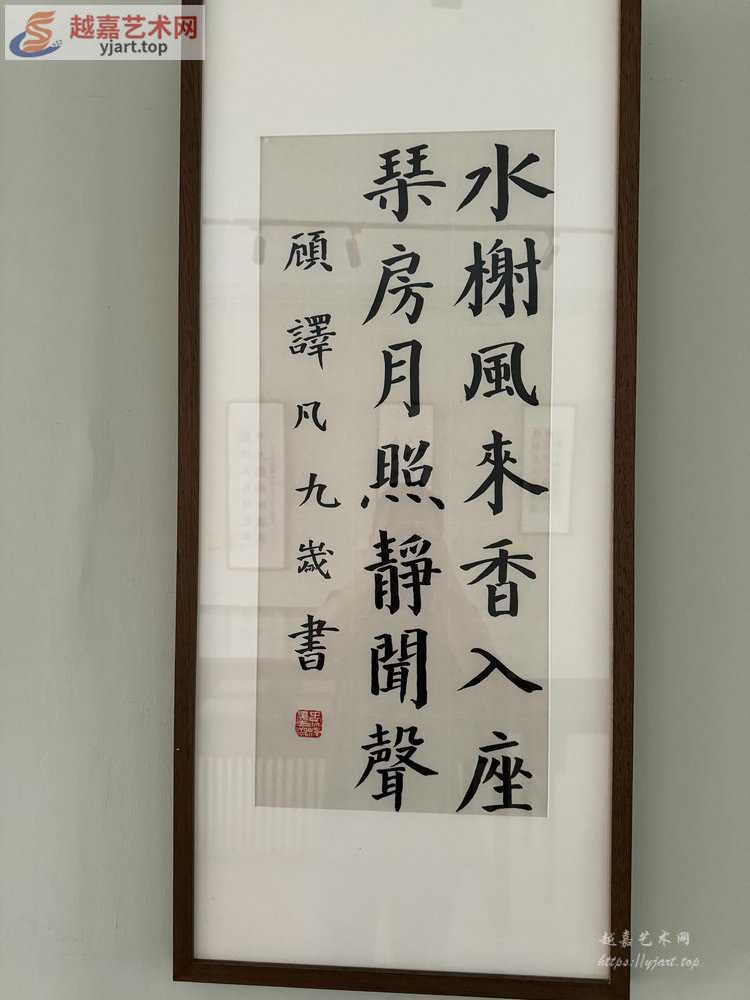 越嘉艺术网
yjart.top
水榭風來香入座
琹房月照靜聞聲
頋譯凡九歲書
越嘉艺术网
https://yjart.top